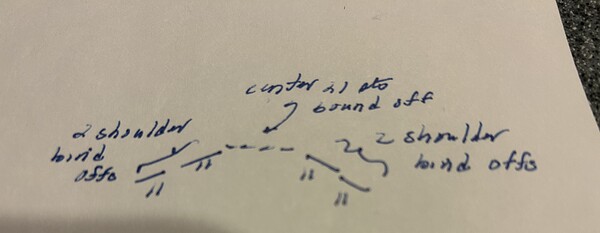 center 21 sts
bound off
2 shoulder
bind
offs
2 shoulder
bind offs
11
11
11
11